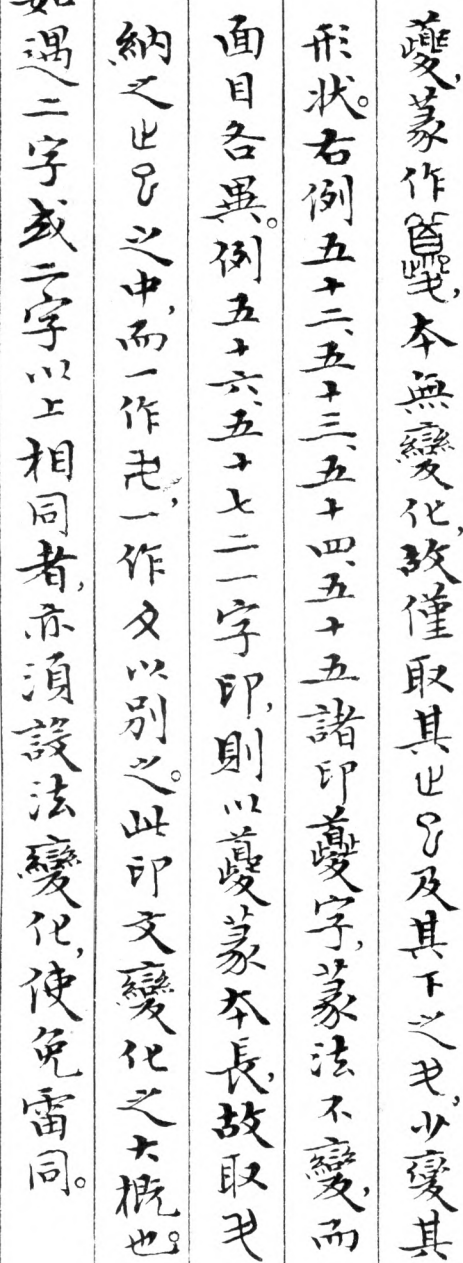 夔,篆作,本無變化,故僅取其止巳及其下之,少變其
形狀。右例五十二、五十三、五十四、五十五諸印夔字,篆法不變,而
面目各異。例五十六、五十七二一字印,則以夔篆本長,故取
納之止巳之中,而一作,一作夂以別之。此印文變化之大概也。
如遇二字或二字以上相同者,亦須設法變化,使免雷同。